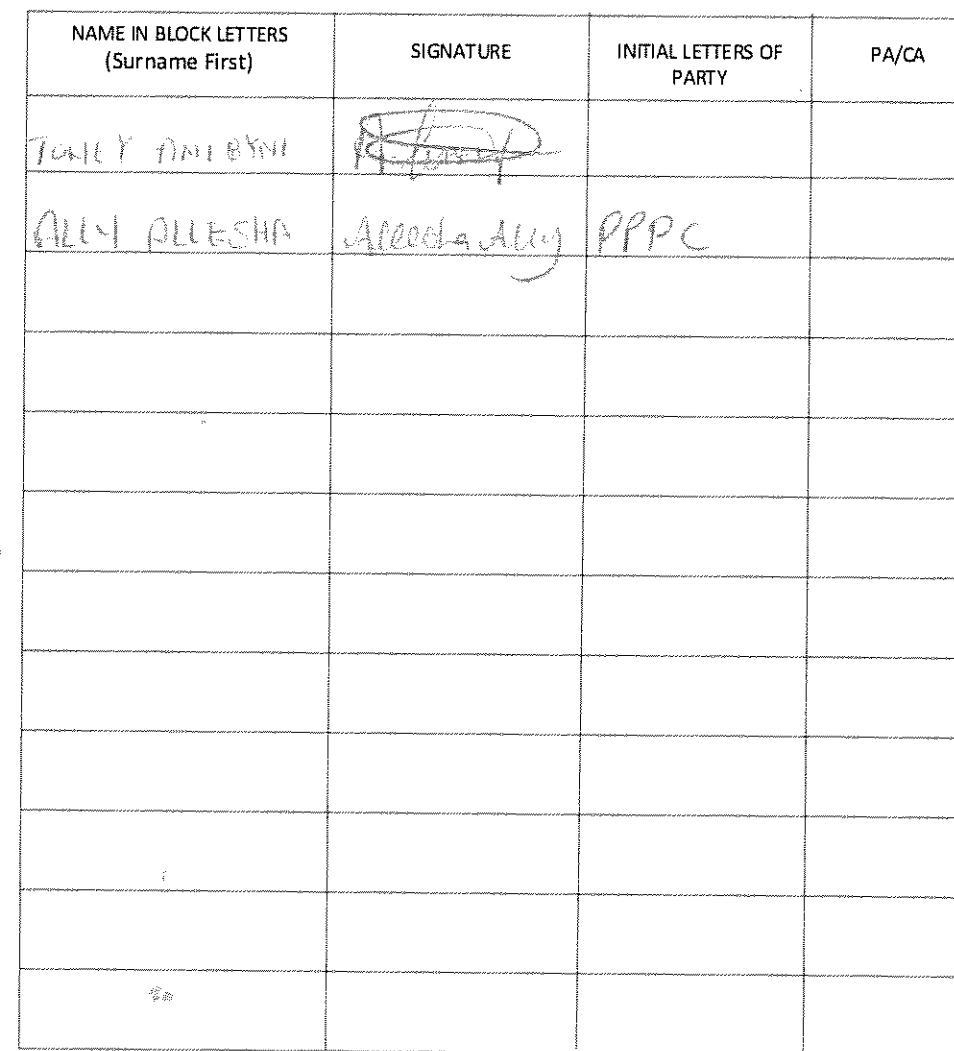 NAME IN BLOCK LETTERS
(Surname First)
SIGNATURE
INITIAL LETTERS OF
PARTY
PA/CA
TONEY
ALLY ALLESHA Alleesha Ally PPPC